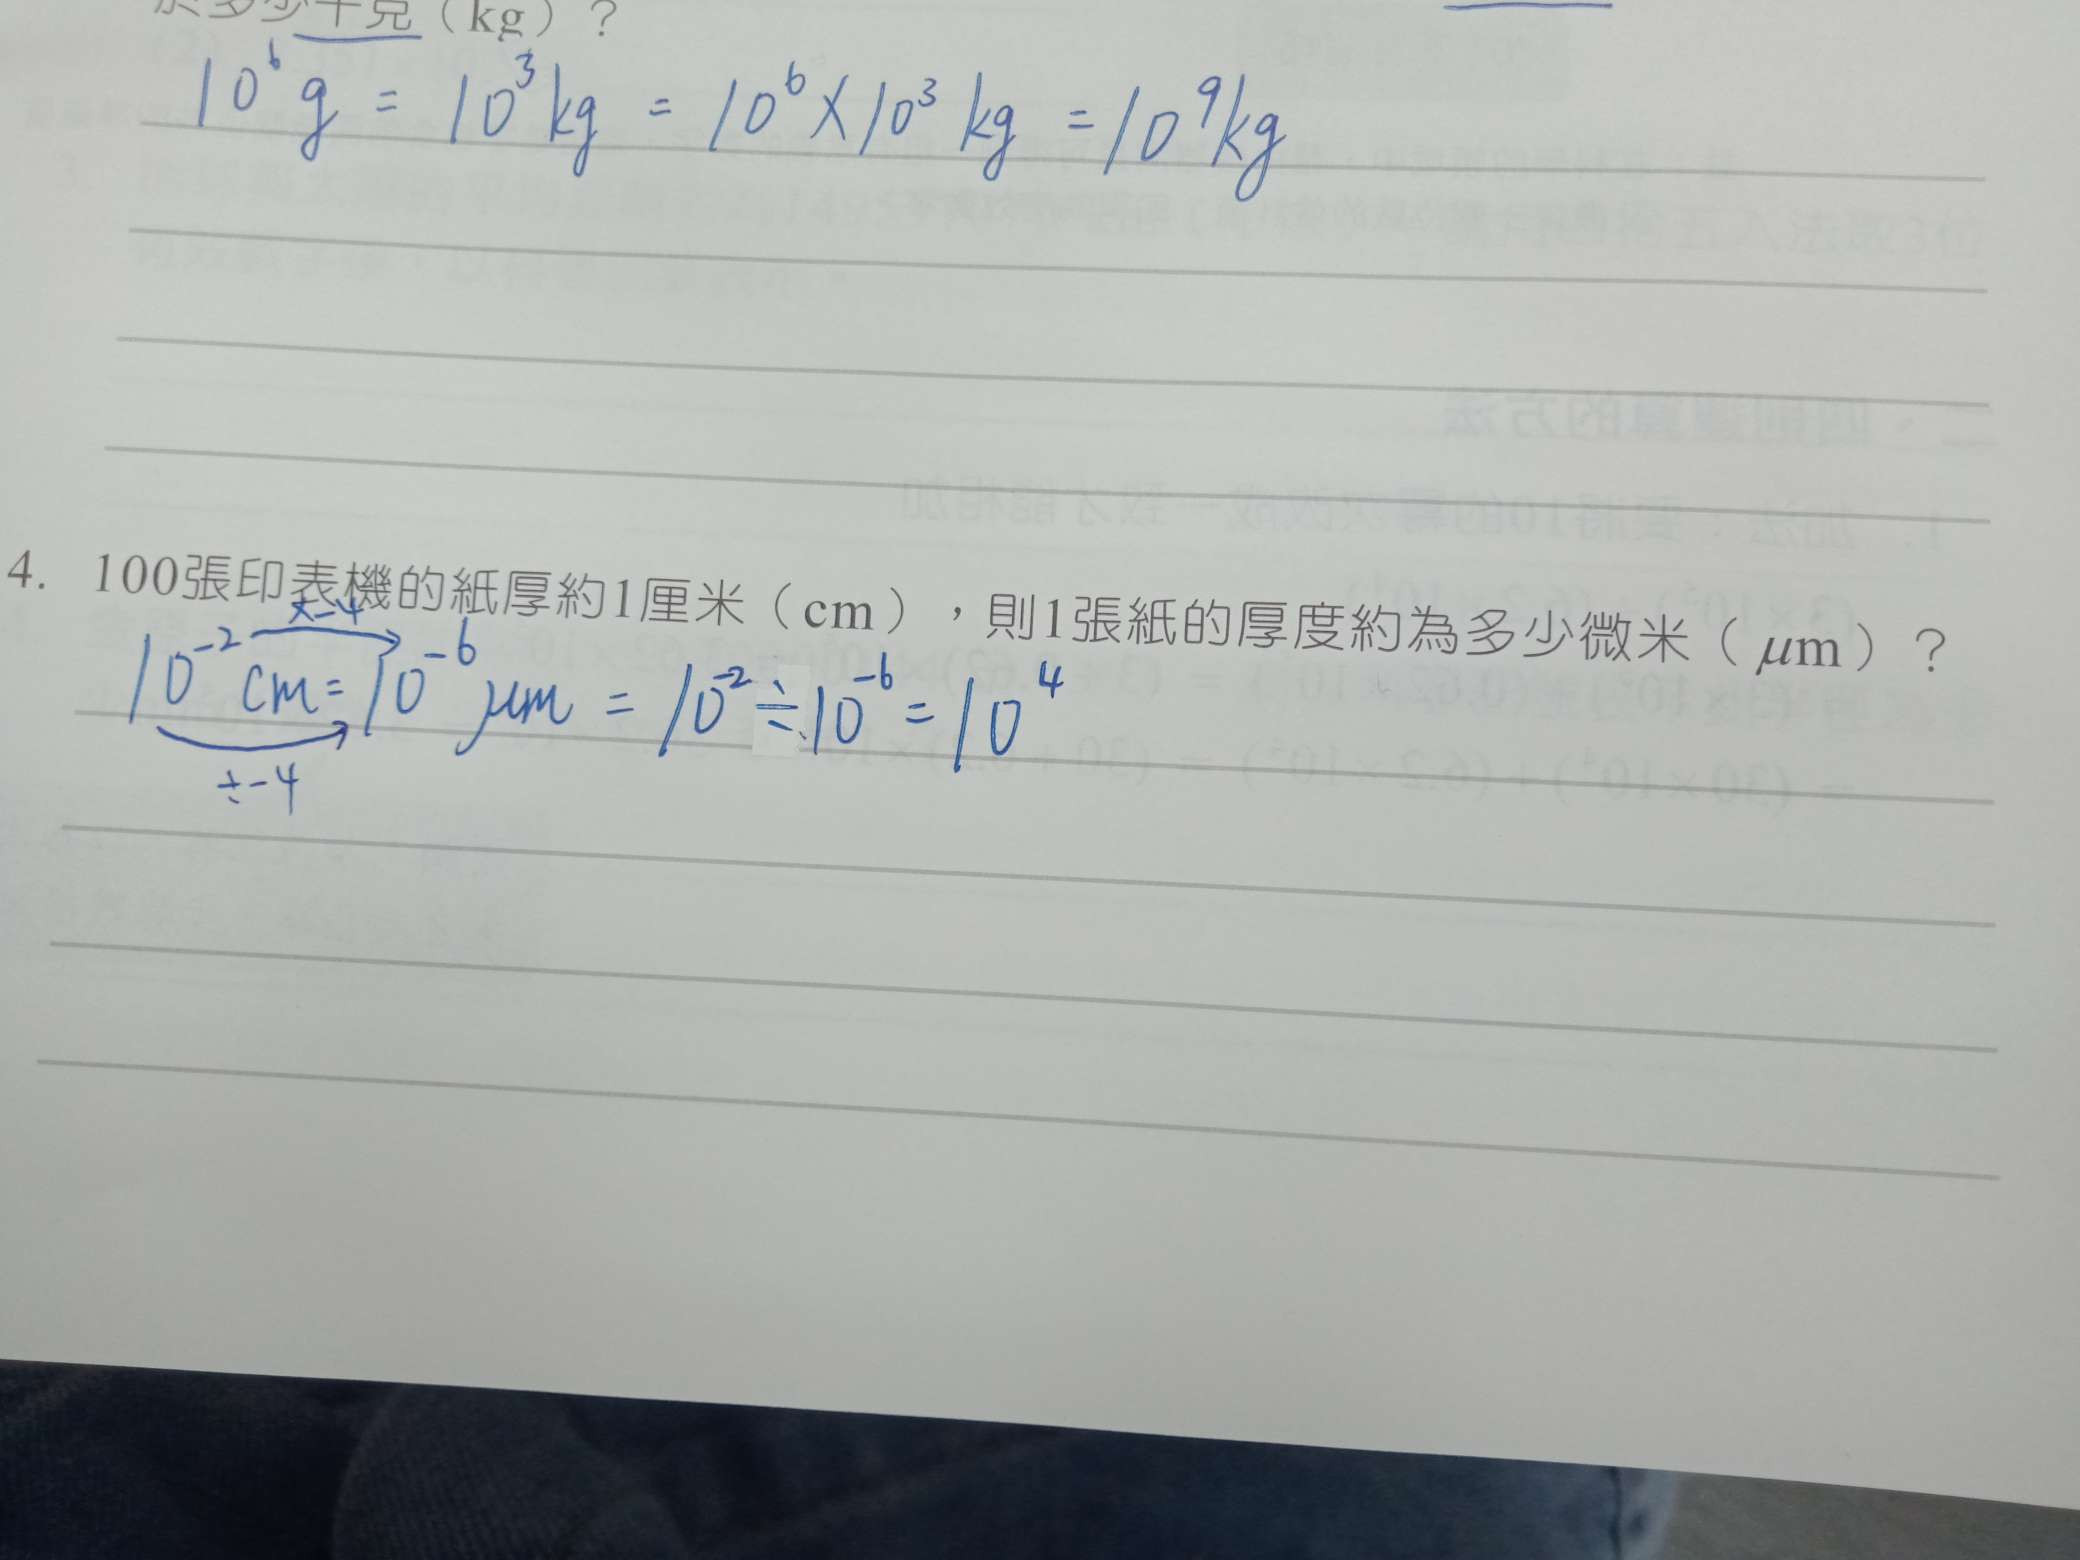 於多少千克（kg）？
10⁶ g = 10³ kg = 10⁶ × 10³ kg = 10⁹ kg
4. 100張印表機的紙厚約1厘米（cm），則1張紙的厚度約為多少微米（μm）？
×-4
10⁻² cm = 10⁻⁶ μm = 10⁻² ÷ 10⁻⁶ = 10⁴
÷-4